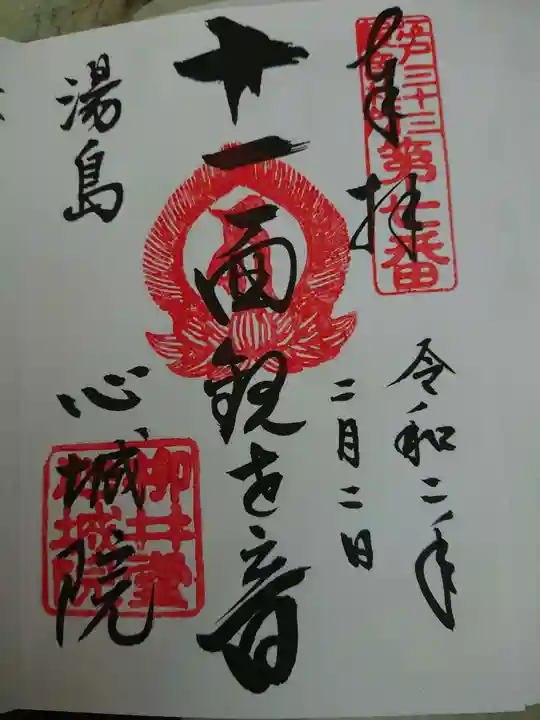 奉拝
江戸三十三
観音札所
第七番
令和二年
二月二日
十一面観世音
湯島
心城院
柳井堂
心城院